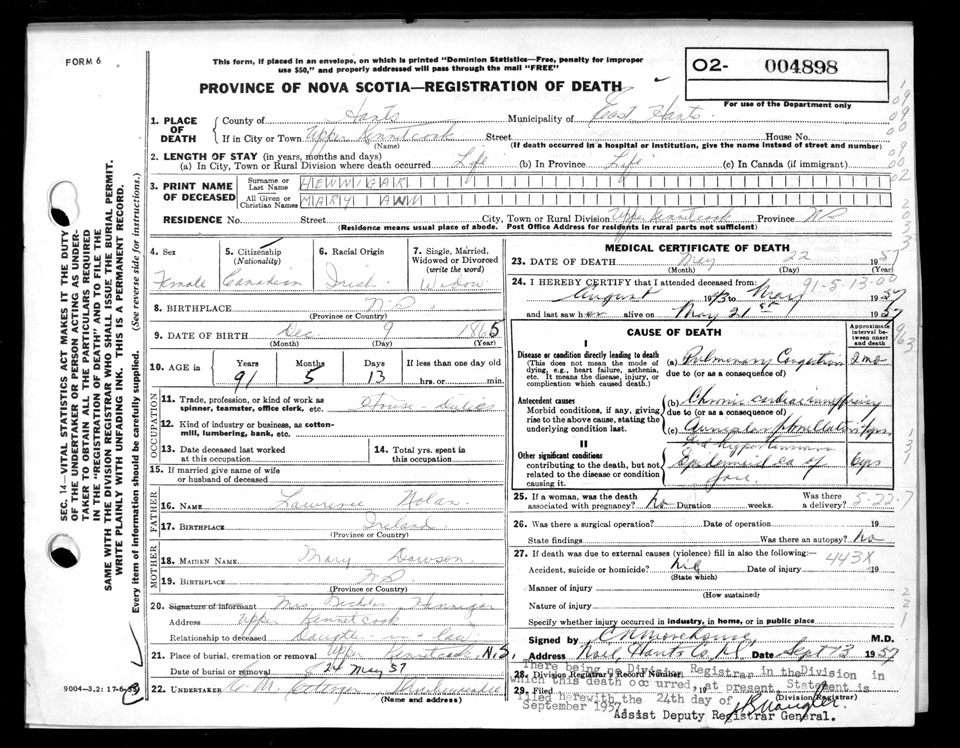 FORM 6
This form, if placed in an envelope, on which is printed "Dominion Statistics—Free, penalty for improper
use $50," and properly addressed will pass through the mail "FREE"
O2- 004898
PROVINCE OF NOVA SCOTIA—REGISTRATION OF DEATH
For use of the Department only
1. PLACE OF DEATH
County of Hants Municipality of East Hants
If in City or Town Upper Kennetcook Street House No.
(Name) (If death occurred in a hospital or institution, give the name instead of street and number)
2. LENGTH OF STAY (in years, months and days)
(a) In City, Town or Rural Division where death occurred Life (b) In Province Life (c) In Canada (if immigrant)
3. PRINT NAME OF DECEASED
Surname or Last Name HENNIGAR
All Given or Christian Names MARY ANN
RESIDENCE No. Street City, Town or Rural Division Upper Kennetcook Province N.S.
(Residence means usual place of abode. Post Office Address for residents in rural parts not sufficient)
4. Sex Female
5. Citizenship (Nationality) Canadian
6. Racial Origin Irish
7. Single, Married, Widowed or Divorced (write the word) Widow
8. BIRTHPLACE N.S.
(Province or Country)
9. DATE OF BIRTH Dec. 9 1865
(Month) (Day) (Year)
10. AGE in Years Months Days If less than one day old
91 5 13 hrs. or min.
OCCUPATION
11. Trade, profession, or kind of work as
spinner, teamster, office clerk, etc. House duties
12. Kind of industry or business, as cotton-
mill, lumbering, bank, etc.
13. Date deceased last worked
at this occupation
14. Total yrs. spent in
this occupation
15. If married give name of wife
or husband of deceased
FATHER
16. NAME Lawrence Nolan
17. BIRTHPLACE Ireland
(Province or Country)
MOTHER
18. MAIDEN NAME Mary Dawson
19. BIRTHPLACE N.S.
(Province or Country)
20. Signature of informant Mrs. Hennigar
Address Upper Kennetcook
Relationship to deceased Daughter-in-law
21. Place of burial, cremation or removal Upper Kennetcook, N.S.
Date of burial or removal 24 May 57
22. UNDERTAKER
(Name and address)
MEDICAL CERTIFICATE OF DEATH
23. DATE OF DEATH May 22 1957
(Month) (Day) (Year)
24. I HEREBY CERTIFY that I attended deceased from: 91-5-13-00
August to May 1957
and last saw her alive on May 21st 1957
CAUSE OF DEATH
Approximate interval between onset and death
I
Disease or condition directly leading to death
(This does not mean the mode of
dying, e.g., heart failure, asthenia,
etc. It means the disease, injury, or
complication which caused death.)
(a) Pulmonary Congestion 2 mo
due to (or as a consequence of)
Antecedent causes
Morbid conditions, if any, giving
rise to the above cause, stating the
underlying condition last.
(b) Chronic cardiac
due to (or as a consequence of)
(c)
II
Other significant conditions
contributing to the death, but not
related to the disease or condition
causing it.
Epidermoid Ca of 6 yrs
25. If a woman, was the death
associated with pregnancy? no Duration weeks. Was there
a delivery? 5-22-7
26. Was there a surgical operation? Date of operation 19
State findings Was there an autopsy? no
27. If death was due to external causes (violence) fill in also the following:—
443X
Accident, suicide or homicide? Date of injury 19
(State which)
Manner of injury
(How sustained)
Nature of injury
Specify whether injury occurred in industry, in home, or in public place
Signed by M.D.
Address Noel, Hants Co. Date Sept 13 1957
28. Division Registrar's Record Number
29. Filed 19
(Division Registrar)
There being no Division Registrar in the Division in
which this death occurred, at present, Statement is
filed herewith the 24th day of
September 1957
Assist Deputy Registrar General.
SEC. 14—VITAL STATISTICS ACT MAKES IT THE DUTY
OF THE UNDERTAKER OR PERSON ACTING AS UNDER-
TAKER TO OBTAIN ALL THE PARTICULARS REQUIRED
IN THE "REGISTRATION OF DEATH" AND TO FILE THE
SAME WITH THE DIVISION REGISTRAR WHO SHALL ISSUE THE BURIAL PERMIT.
WRITE PLAINLY WITH UNFADING INK. THIS IS A PERMANENT RECORD.
Every item of information should be carefully supplied. (See reverse side for instructions.)